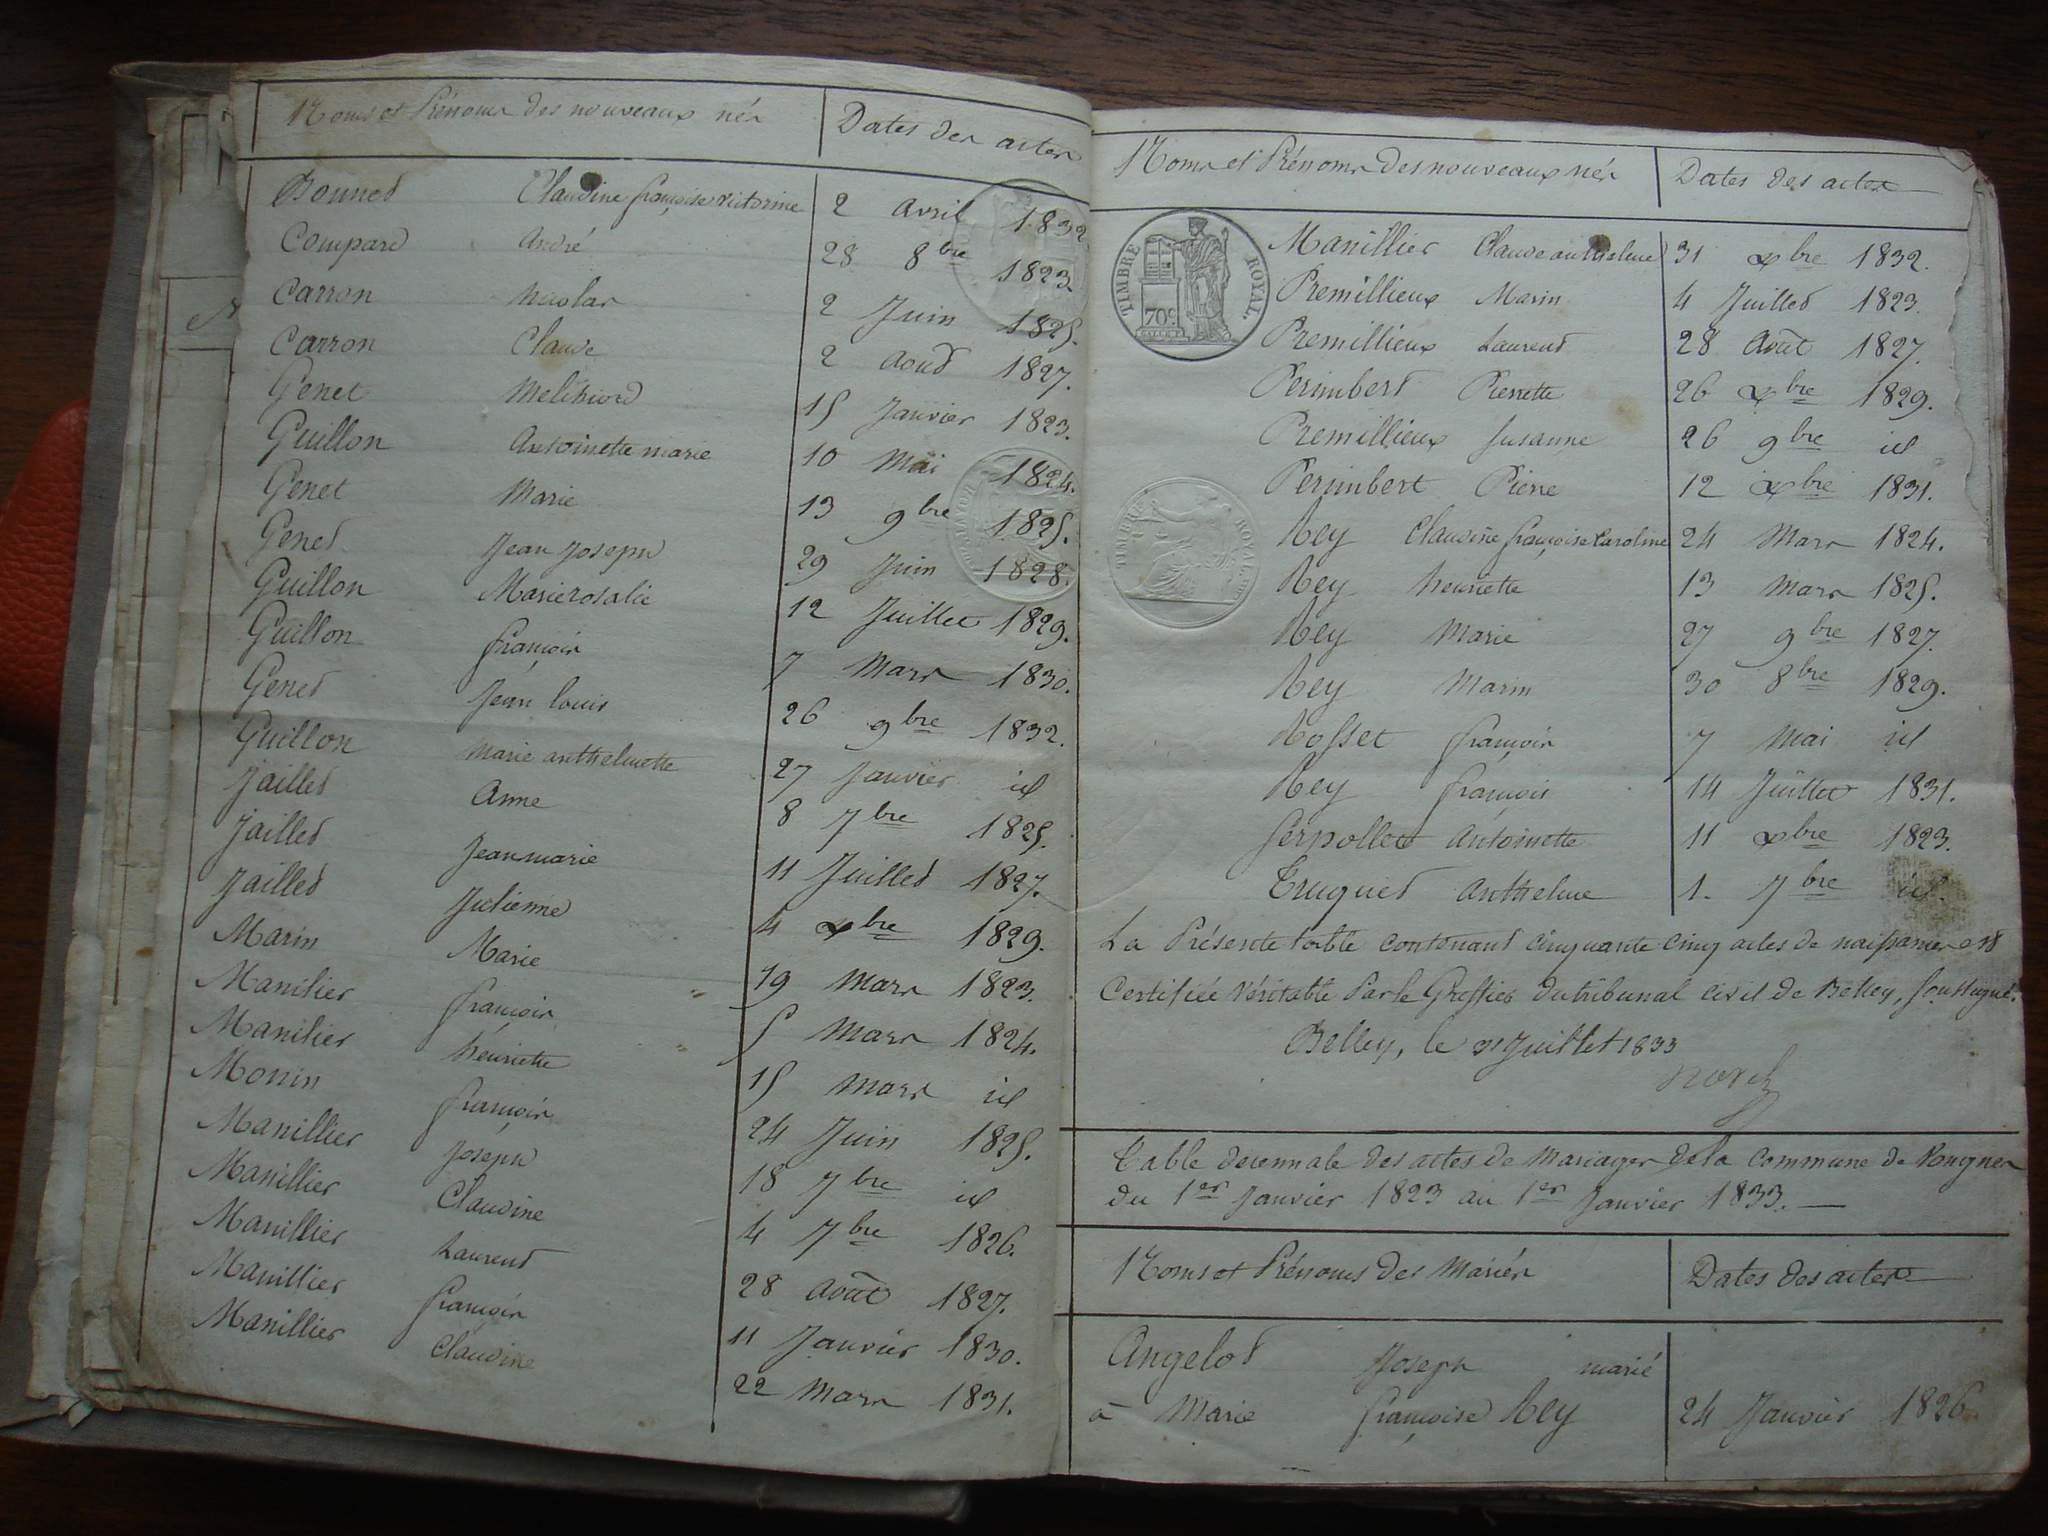 Noms et Prénoms des nouveaux nés Dates des actes
Bonnet Claudine françoise victorine 2 avril 1832
Compard André 28 8bre 1823
Carron nicolas 2 Juin 1825.
Carron Claude 2 Aout 1827.
Genet Melchiord 15 Janvier 1823.
Guillon Antoinette marie 10 Mai 1824.
Genet Marie 13 9bre 1825.
Genet Jean Joseph 29 Juin 1828.
Guillon Marie rosalie 12 Juillet 1829.
Guillon françois 7 Mars 1830.
Genet Jean louis 26 9bre 1832.
Guillon Marie anthelmette 27 Janvier id
Jaillet Anne 8 7bre 1825.
Jaillet Jean marie 11 Juillet 1827.
Jaillet Julienne 4 xbre 1829.
Marin Marie 19 Mars 1823.
Manilier françois 5 Mars 1824.
Manilier henriette 15 Mars id
Monin françois 24 Juin 1825.
Manillier Joseph 18 7bre id
Manillier Claudine 4 7bre 1826.
Manillier Laurent 28 Août 1827.
Manillier françois 11 Janvier 1830.
Manillier Claudine 22 Mars 1831.
Noms et Prénoms des nouveaux nés Dates des actes
TIMBRE ROYAL.
70c.
Manillier Claude anthelme 31 xbre 1832.
Premillieux Marin 4 Juillet 1823.
Premillieux Laurent 28 Août 1827.
Perimbert Pierrette 26 xbre 1829.
Premillieux Susanne 26 9bre id
Perimbert Pierre 12 xbre 1831.
TIMBRE ROYAL
Rey Claudine françoise Caroline 24 Mars 1824.
Rey henriette 13 Mars 1825.
Rey Marie 27 9bre 1827.
Rey Marin 30 8bre 1829.
Rosset françois 7 Mai id
Rey françois 14 Juillet 1831.
Serpollet Antoinette 11 xbre 1823.
Truquet Anthelme 1. 7bre id.
La Présente table contenant cinquante cinq actes de naissances est
Certifiée Véritable Par le Greffier du tribunal civil de Belley, soussigné.
Belley, le 31 Juillet 1833
Table decennale des actes de Mariages de la Commune de Pougner
du 1er Janvier 1823 au 1er Janvier 1833.
Noms et Prénoms des Mariés Dates des actes
Angelot Joseph marié
à Marie françoise Rey 24 Janvier 1826